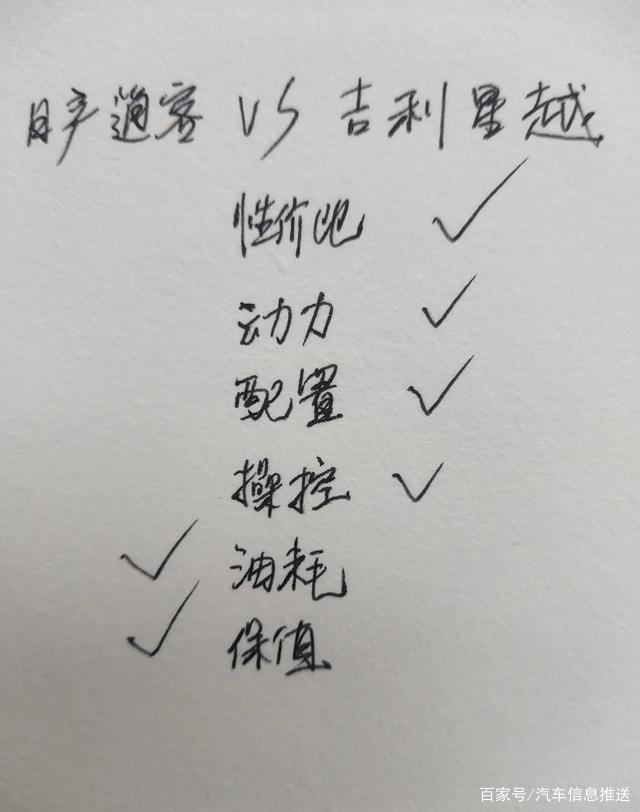 日产逍客 VS 吉利星越
性价比 ✓
动力 ✓
配置 ✓
操控 ✓
✓ 油耗
✓ 保值
百家号/汽车信息推送